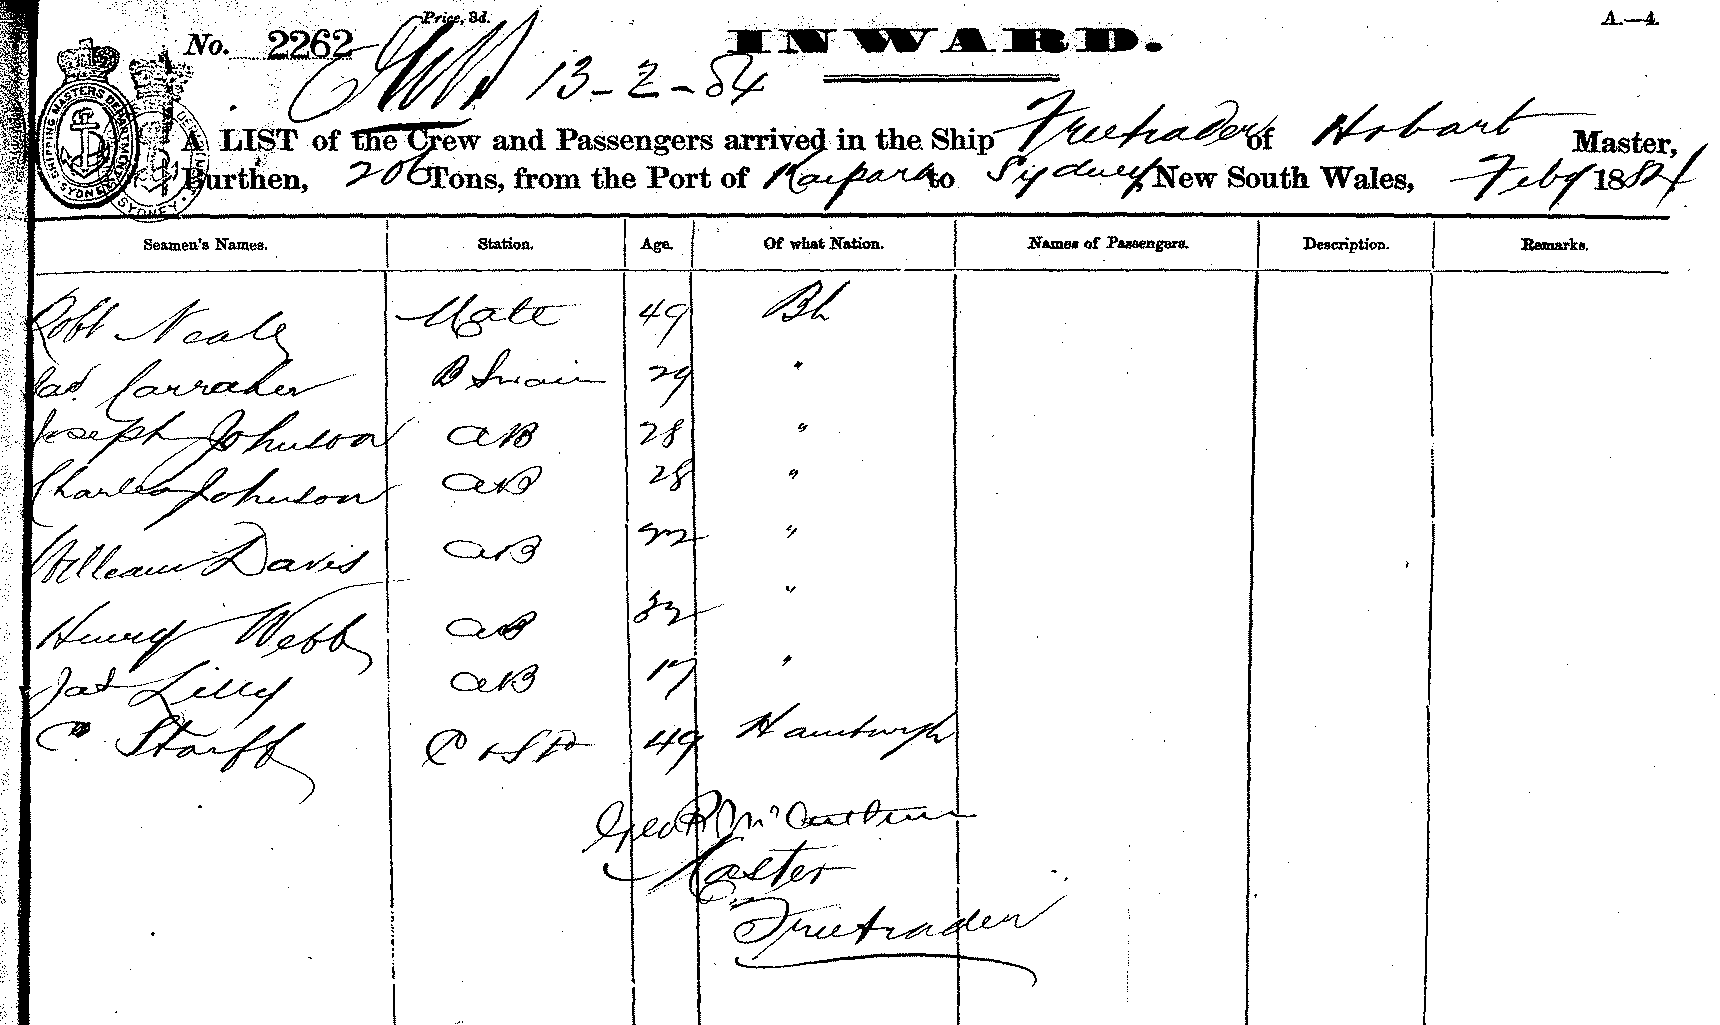 Price, 3d.
A.—4.
No. 2262
INWARD.
13-2-84
A LIST of the Crew and Passengers arrived in the Ship Freetrader of Hobart Master,
Burthen, 206 Tons, from the Port of Kaipara to Sydney, New South Wales, Feby 1884
Seamen's Names. Station. Age. Of what Nation. Names of Passengers. Description. Remarks.
Robt Neale Mate 49 Bh
Jas. Carraher B Swain 29 "
Joseph Johnson AB 28 "
Charles Johnson AB 28 "
William Davis AB "
Henry Webb AB 32 "
Jas Lilly AB 17 "
C Storff C & Std 49 Hamburgh
Geo
Master
Freetrader
SHIPPING MASTERS DEPARTMENT SYDNEY
SYDNEY